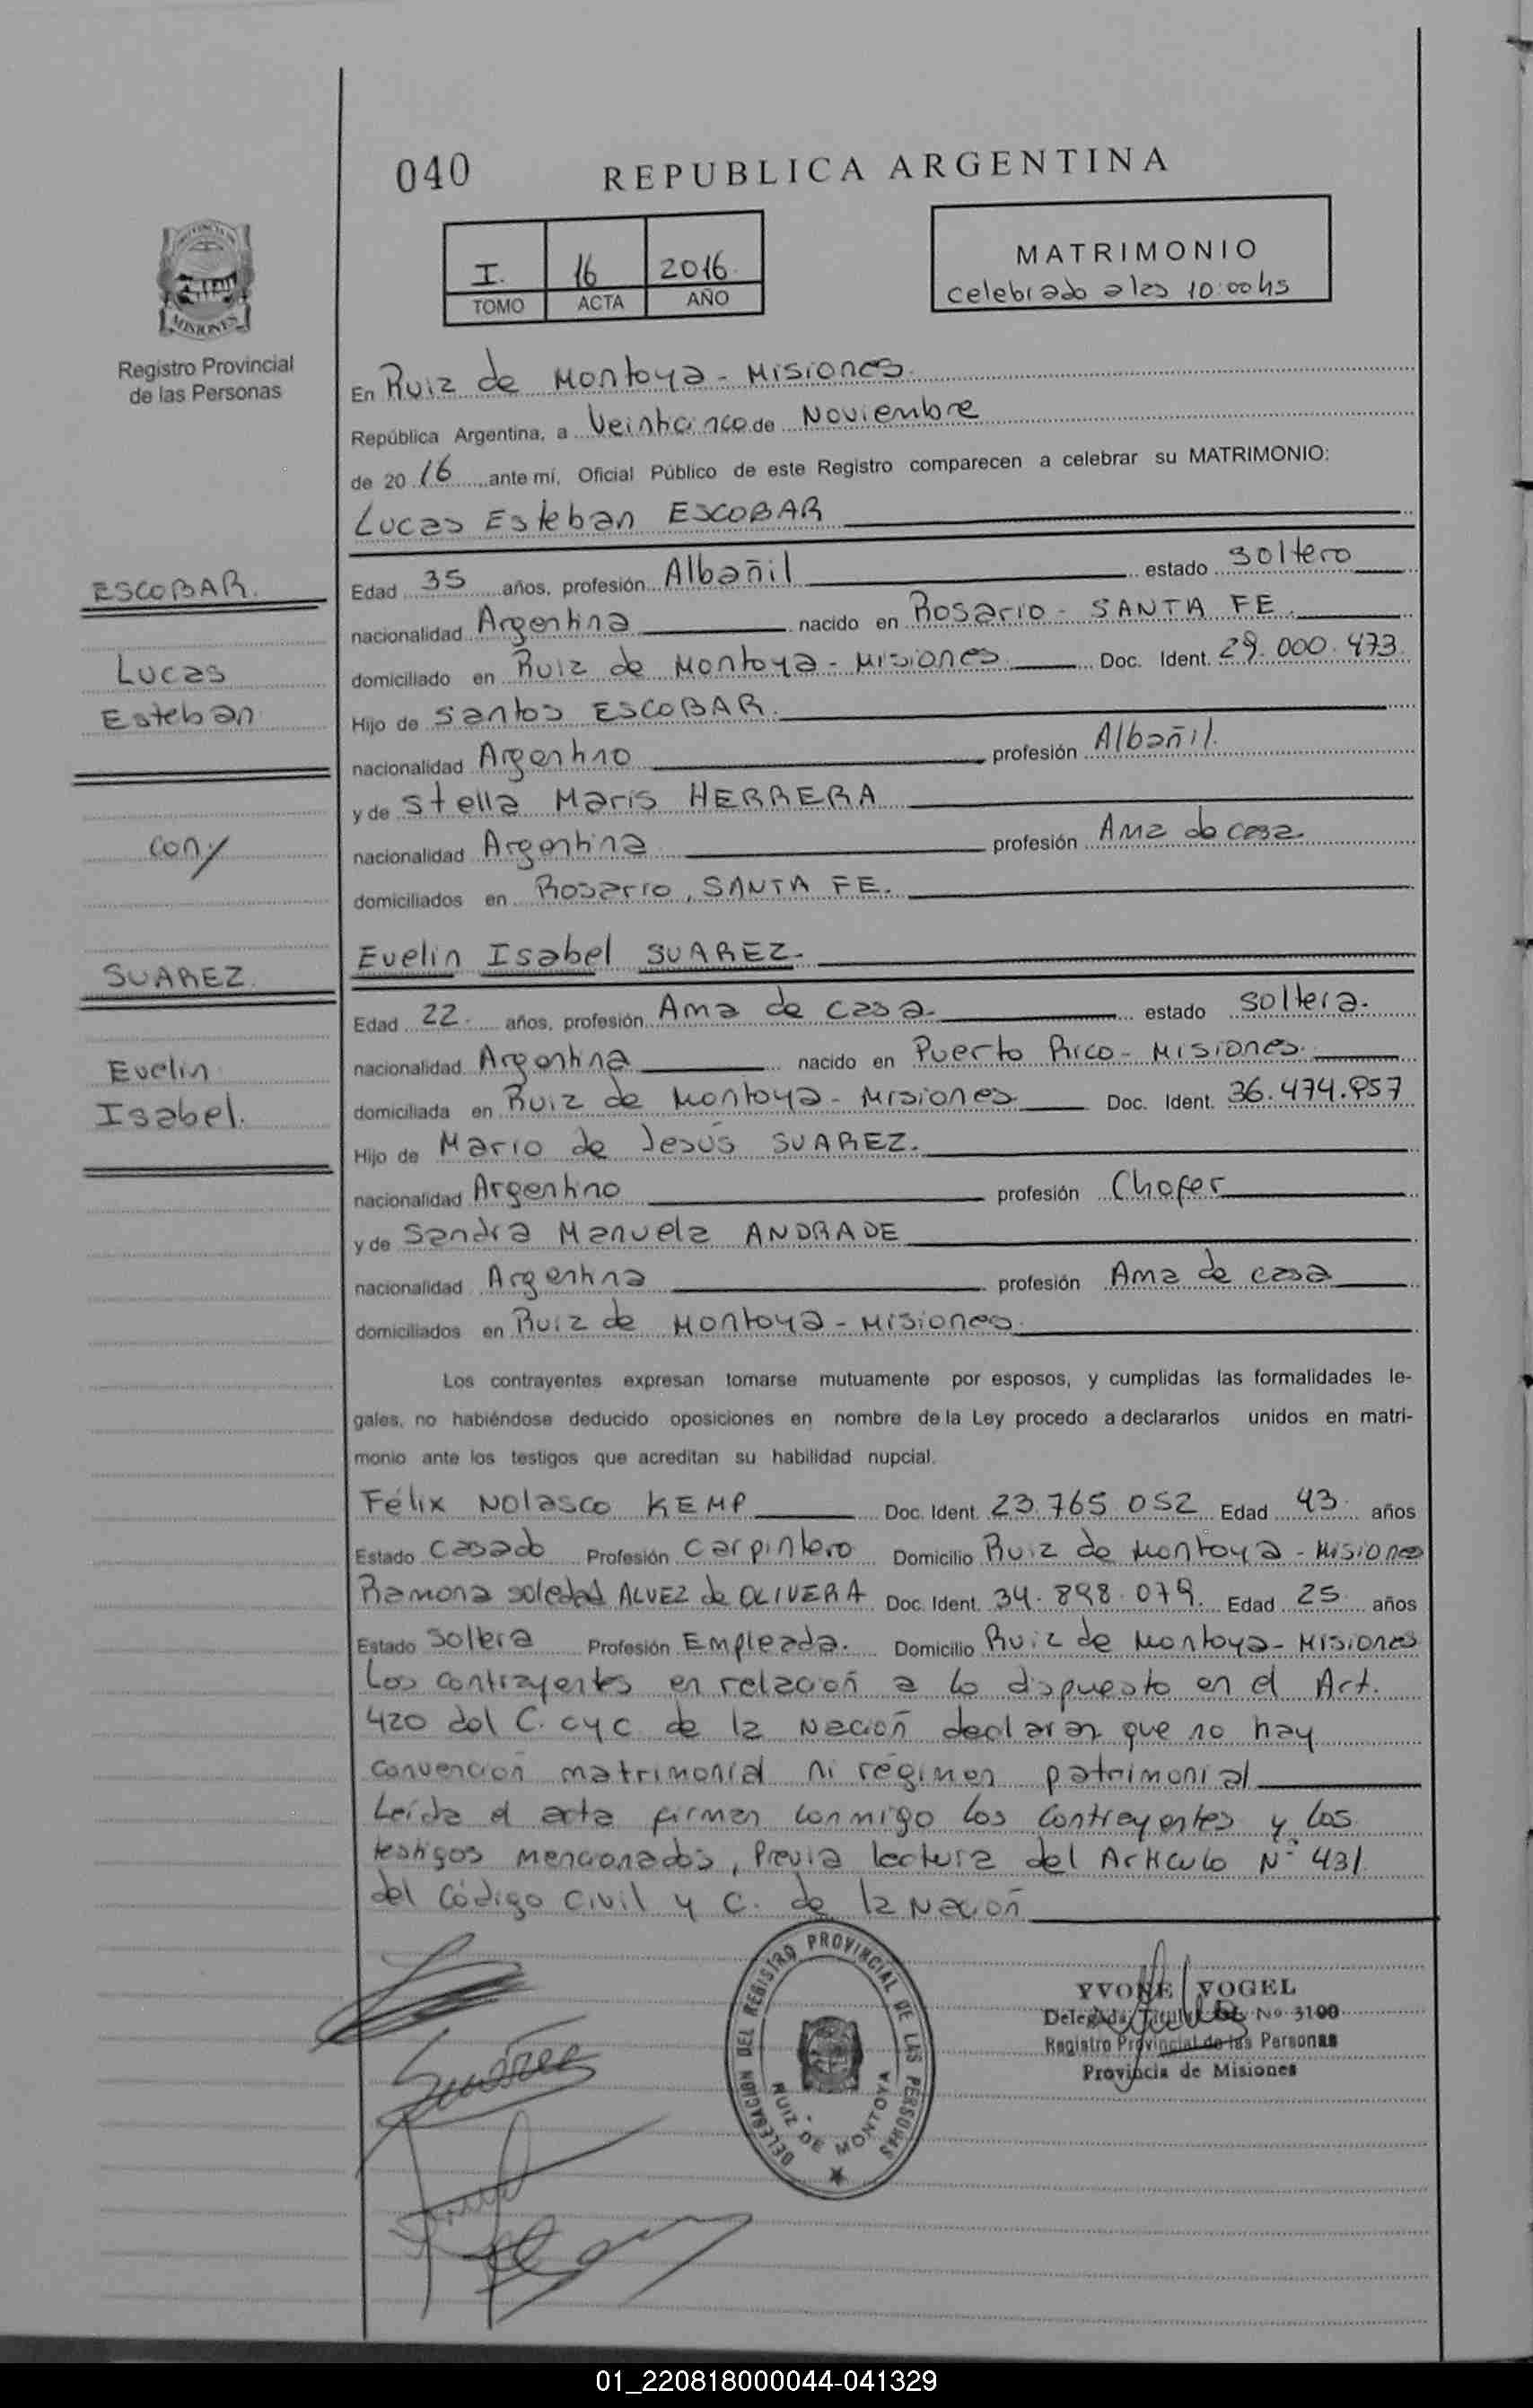 040 REPUBLICA ARGENTINA
I. 16 2016.
TOMO ACTA AÑO
MATRIMONIO
celebrado a las 10:00 hs
MISIONES
Registro Provincial
de las Personas
En Ruiz de Montoya - Misiones.
República Argentina, a Veinticinco de Noviembre
de 2016 ante mí, Oficial Público de este Registro comparecen a celebrar su MATRIMONIO:
Lucas Esteban ESCOBAR
ESCOBAR.
Lucas
Esteban
con/
SUAREZ.
Evelin
Isabel.
Edad 35 años, profesión Albañil estado soltero
nacionalidad Argentina nacido en Rosario - SANTA FE.
domiciliado en Ruiz de Montoya - Misiones Doc. Ident. 29.000.473
Hijo de Santos ESCOBAR.
nacionalidad Argentino profesión Albañil.
y de Stella Maris HERRERA
nacionalidad Argentina profesión Ama de casa.
domiciliados en Rosario, SANTA FE.
Evelin Isabel SUAREZ.
Edad 22. años, profesión Ama de casa. estado soltera.
nacionalidad Argentina nacido en Puerto Rico - Misiones.
domiciliada en Ruiz de Montoya - Misiones Doc. Ident. 36.474.857
Hijo de Mario de Jesús SUAREZ.
nacionalidad Argentino profesión Chofer
y de Sandra Manuela ANDRADE
nacionalidad Argentina profesión Ama de casa
domiciliados en Ruiz de Montoya - Misiones.
Los contrayentes expresan tomarse mutuamente por esposos, y cumplidas las formalidades le-
gales, no habiéndose deducido oposiciones en nombre de la Ley procedo a declararlos unidos en matri-
monio ante los testigos que acreditan su habilidad nupcial.
Félix Nolasco KEMP Doc. Ident. 23.765.052 Edad 43. años
Estado Casado Profesión Carpintero Domicilio Ruiz de Montoya - Misiones
Ramona Soledad ALVEZ de OLIVERA Doc. Ident. 34.898.079. Edad 25 años
Estado Soltera Profesión Empleada. Domicilio Ruiz de Montoya - Misiones
Los contrayentes en relación a lo dispuesto en el Art.
420 del C. c y C. de la Nación declaran que no hay
convención matrimonial ni régimen patrimonial
Leída el acta firman conmigo los contrayentes y los
testigos mencionados, Previa lectura del Articulo N° 431
del Código Civil y C. de la Nación
Suárez
DELEGACION DEL REGISTRO PROVINCIAL DE LAS PERSONAS
RUIZ DE MONTOYA
YVONE VOGEL
Delegada Titular Nº 3100
Registro Provincial de las Personas
Provincia de Misiones
01_220818000044-041329